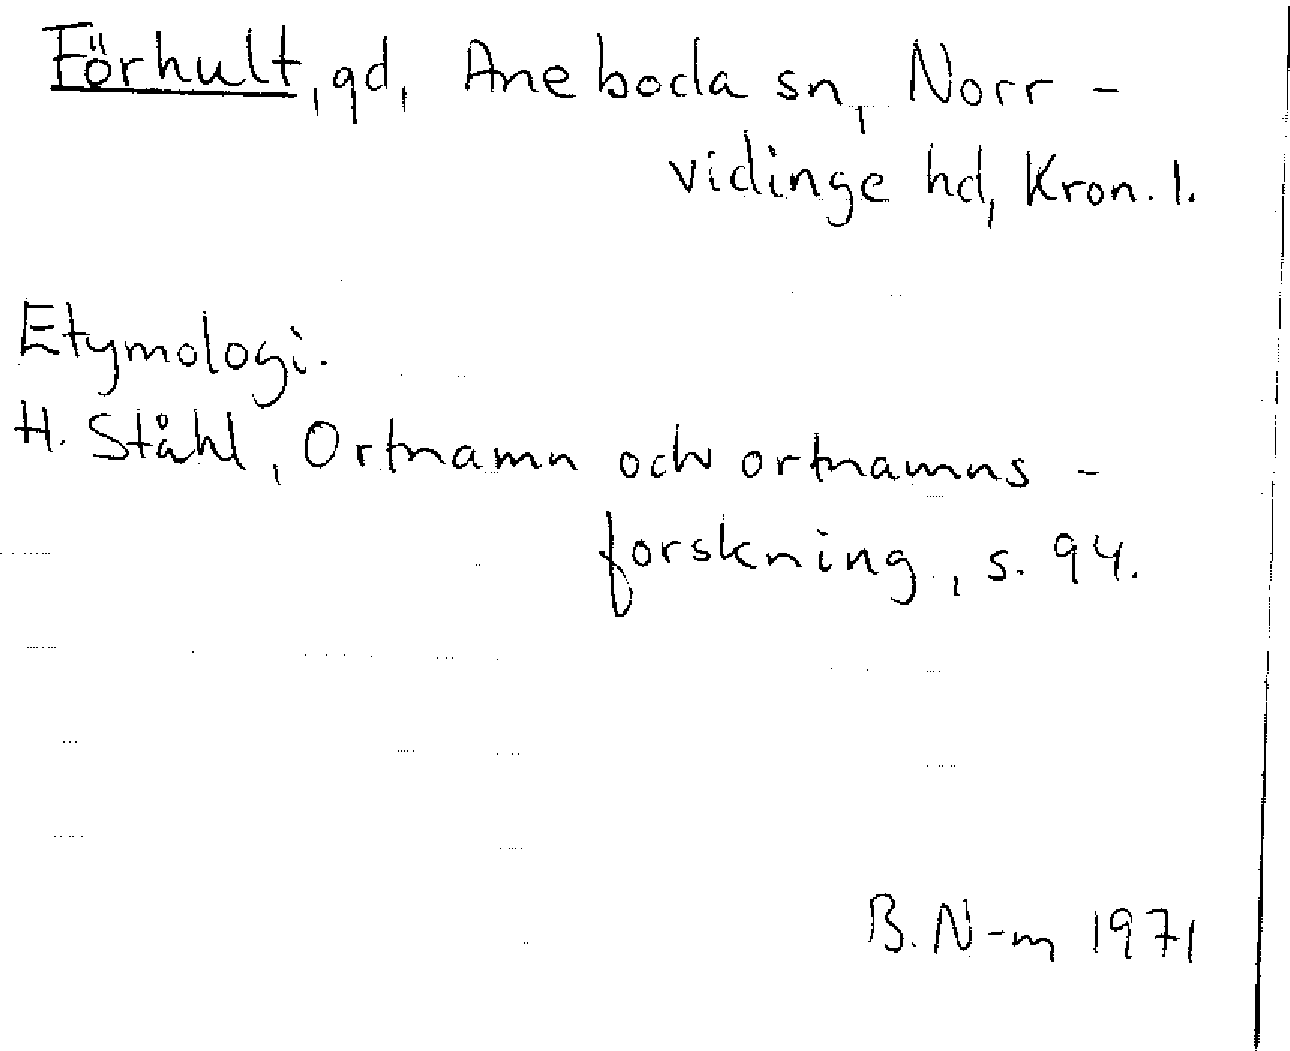 Förhult, gd, Aneboda sn, Norr-
vidinge hd, Kron. l.
Etymologi.
H. Ståhl, Ortnamn och ortnamns-
forskning, s. 94.
B. N-m 1971